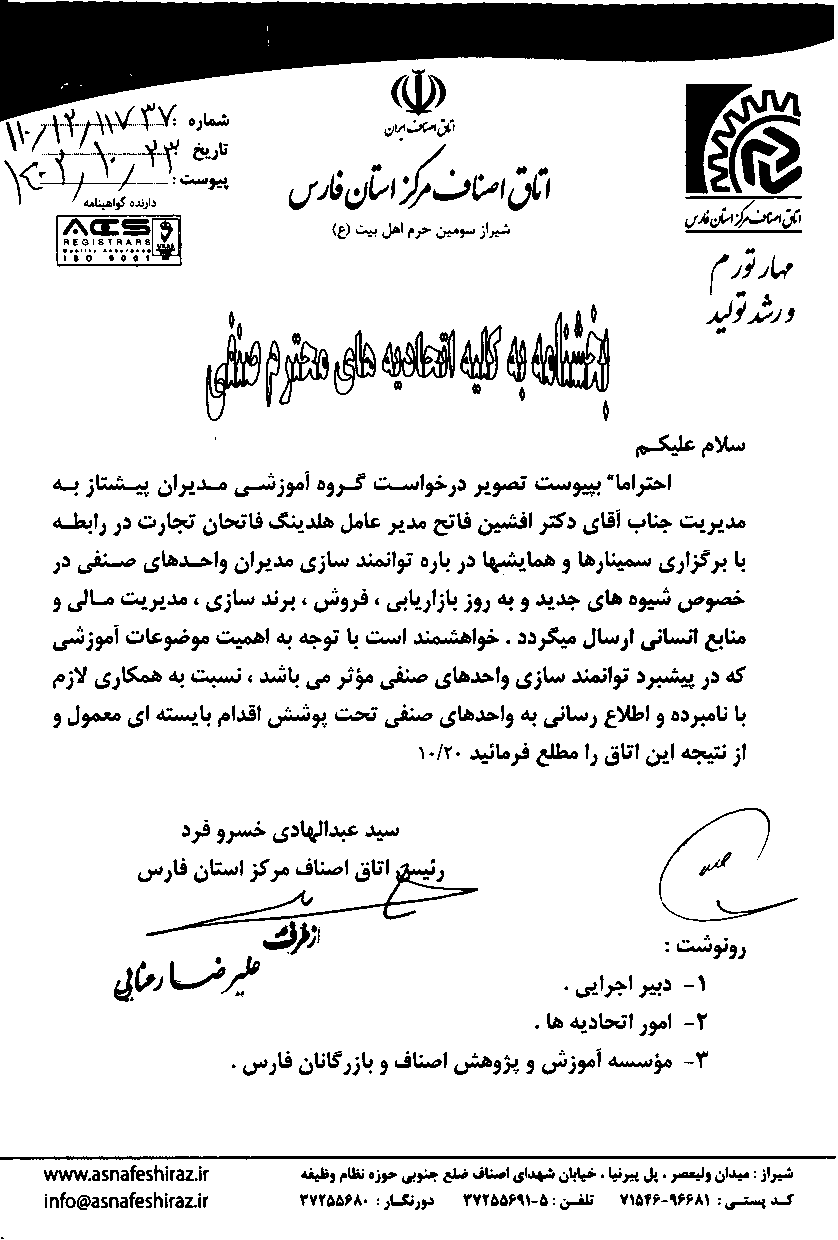 اتاق اصناف ایران
اتاق اصناف مرکز استان فارس
شیراز سومین حرم اهل بیت (ع)
اتاق اصناف مرکز استان فارس
مهار تورم
و رشد تولید
شماره :
تاریخ
پیوست :
دارنده گواهینامه
ACS
REGISTRARS
Quality Assurance
ISO 9001
بخشنامه به کلیه اتحادیه های محترم صنفی
سلام علیکم
احتراما" بپیوست تصویر درخواست گروه آموزشی مدیران پیشتاز به
مدیریت جناب آقای دکتر افشین فاتح مدیر عامل هلدینگ فاتحان تجارت در رابطه
با برگزاری سمینارها و همایشها در باره توانمند سازی مدیران واحدهای صنفی در
خصوص شیوه های جدید و به روز بازاریابی ، فروش ، برند سازی ، مدیریت مالی و
منابع انسانی ارسال میگردد . خواهشمند است با توجه به اهمیت موضوعات آموزشی
که در پیشبرد توانمند سازی واحدهای صنفی مؤثر می باشد ، نسبت به همکاری لازم
با نامبرده و اطلاع رسانی به واحدهای صنفی تحت پوشش اقدام بایسته ای معمول و
از نتیجه این اتاق را مطلع فرمائید ۱۰/۲۰
سید عبدالهادی خسرو فرد
رئیس اتاق اصناف مرکز استان فارس
از طرف
رونوشت :
۱- دبیر اجرایی .
۲- امور اتحادیه ها .
۳- مؤسسه آموزش و پژوهش اصناف و بازرگانان فارس .
شیراز : میدان ولیعصر ، پل پیرنیا ، خیابان شهدای اصناف ضلع جنوبی حوزه نظام وظیفه
کد پستی : ۹۶۶۸۱-۷۱۵۴۶ تلفن : ۵-۳۷۲۵۵۶۹۱ دورنگار : ۳۷۲۵۵۶۸۰
www.asnafeshiraz.ir
info@asnafeshiraz.ir